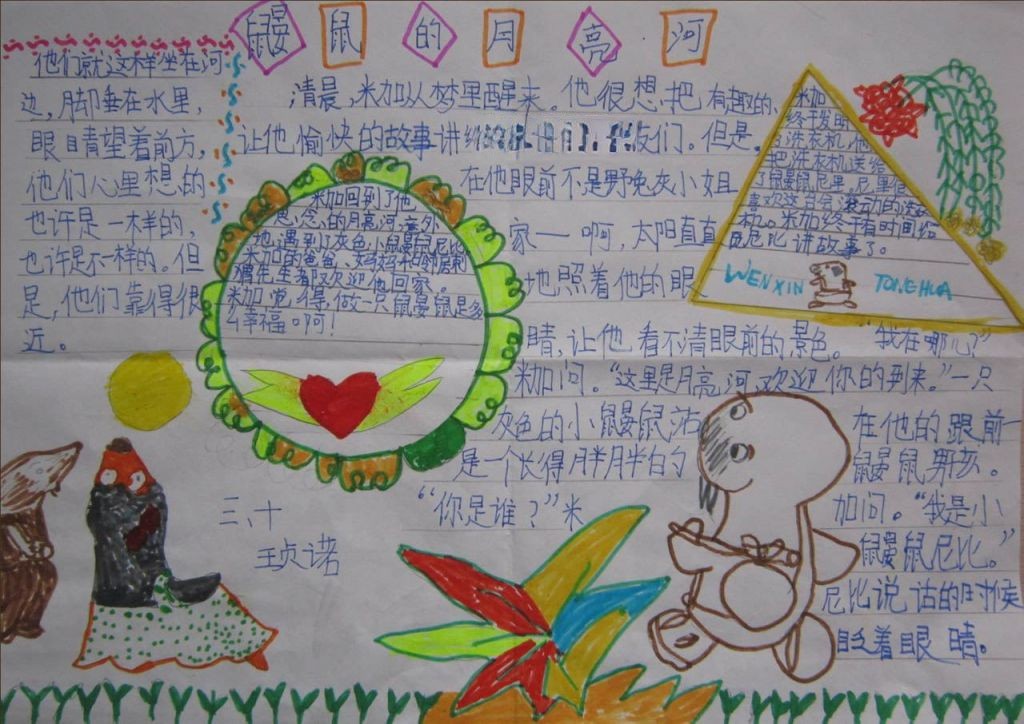 鼹鼠的月亮河
他们就这样坐在河
边，脚垂在水里，
眼睛望着前方，
他们心里想的
也许是一样的，
也许是不一样的。但
是，他们靠得很
近。
清晨，米加从梦里醒来。他很想把有趣的、
让他愉快的故事讲给们。但是，
在他眼前不是野兔灰小姐
家——啊，太阳直直
地照着他的眼
睛，让他看不清眼前的景色。“我在哪儿？”
米加问。“这里是月亮河，欢迎你的到来。”一只
灰色的小鼹鼠站在他的跟前——
是一个长得胖胖的鼹鼠男孩。
“你是谁？”米加问。“我是小
鼹鼠尼比。”
尼比说话的时候
眨着眼睛。
米加回到了他
思念的月亮河，意外
地遇到了灰色小鼹鼠尼比
米加的爸爸、妈妈和邻居刺
猬先生都欢迎他回家。
米加觉得，做一只鼹鼠是多
么幸福啊！
米加
终于发明
了洗衣机，他
把洗衣机送给
了鼹鼠尼里。尼里很
喜欢这台会滚动的洗衣
机。米加终于有时间给
尼比讲故事了。
WENXIN TONGHUA
三、十
王贞诺